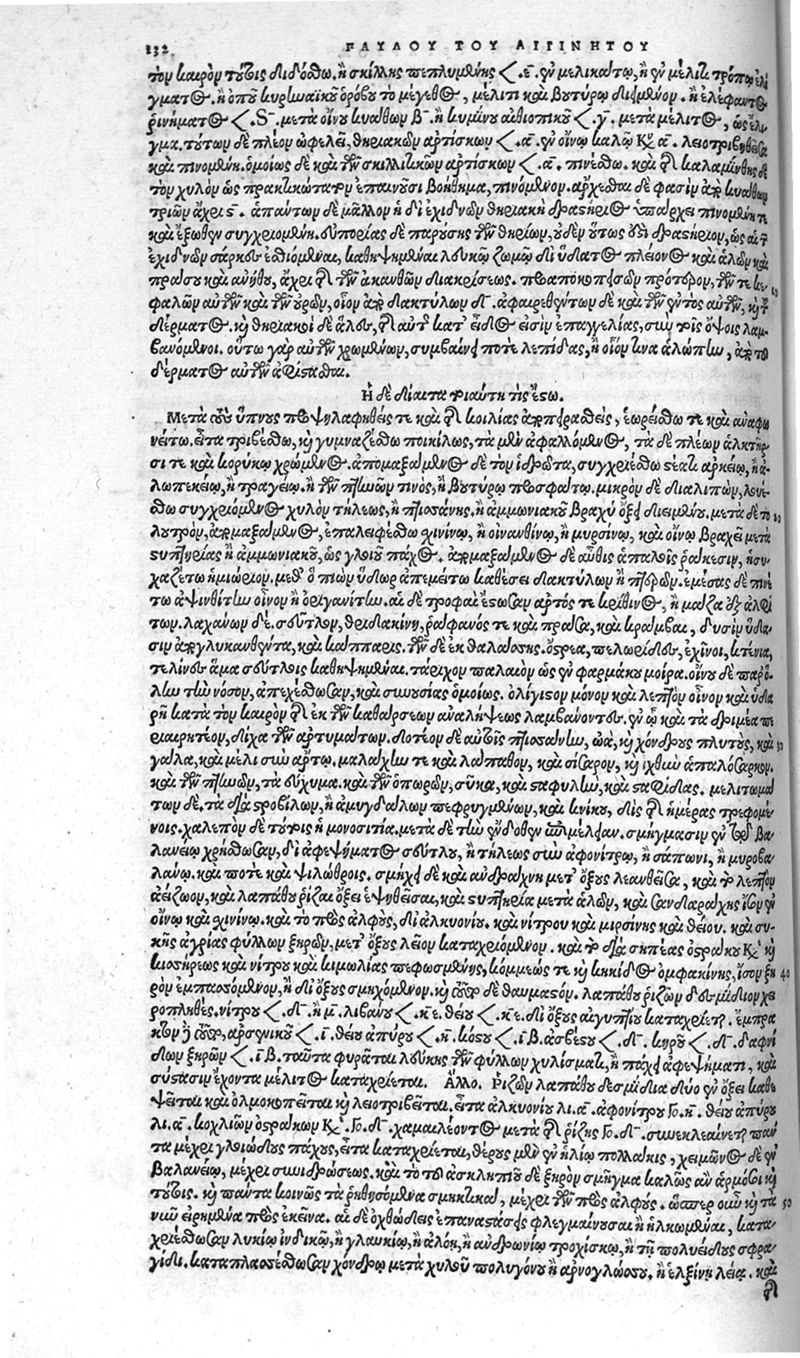 132 ΠΑΥΛΟΥ ΤΟΥ ΑΙΓΙΝΗΤΟΥ
τὸν καιρὸν τούτοις διδόσθω, ἢ σκίλλης πεπλυμένης < .ε. ἐν μελικράτῳ, ἢ ἐν μέλιτι τρόπῳ ἐλί
γματος. ἢ ὀποῦ κυρηναϊκοῦ ὀρόβου τὸ μέγεθος, μέλιτι καὶ βουτύρῳ διεμένου. ἢ ἐλέφαντος
ῥινήματος < .S. μετὰ οἴνου κυάθων β. ἢ κυμίνου αἰθιοπικοῦ < .γ. μετὰ μέλιτος, ὡς ἔλι
γμα. τούτων δὲ πλέον ὠφελεῖ, θηριακῶν ἀρτίσκων < α. ἐν οἴνῳ καλῷ Κυ α. λειοτριβηθεῖσα
καὶ πινομένη. ὁμοίως δὲ καὶ τῶν σκιλλιτικῶν ἀρτίσκων < .α. πινέσθω. καὶ τῆς καλαμίνθης δὲ
τὸν χυλὸν ὡς πρακτικώτατον ἐπαινοῦσι βοήθημα, πινόμενον. ἄρχεσθαι δέ φασιν ἀπὸ κυάθων
τριῶν ἄχρι ς. ἁπάντων δὲ μᾶλλον ἡ δι' ἐχιδνῶν θηριακὴ δραστήριος ὑπάρχει πινομένη τε
καὶ ἔξωθεν συγχριομένη. εὐπορίας δὲ παρούσης τῶν θηρίων, οὐδὲν οὕτως ἐστὶ δραστήριον, ὡς αἱ τῶν
ἐχιδνῶν σάρκες ἐσθιόμεναι, καθηψημέναι λευκῷ ζωμῷ δι' ὕδατος πλείονος καὶ ἁλῶν καὶ
πράσου καὶ ἀνήθου, ἄχρι τῆς τῶν ἀκανθῶν διακρίσεως. προαποκοπτέσθων πρότερον, τῶν τε κε
φαλῶν αὐτῶν καὶ τῶν οὐρῶν, οἷον ἀπὸ δακτύλων δ. ἀφαιρεθέντων δὲ καὶ τῶν ἐντὸς αὐτῶν, καὶ τοῦ
δέρματος. καὶ θηριακοὶ δὲ ἅλες, τῆς αὐτῆς κατ' εἶδος εἰσὶν ἐπαγγελίας, σὺν τοῖς ὄψοις λαμ
βανόμενοι. οὕτω γὰρ αὐτῶν χρωμένων, συμβαίνει ποτε λεπίδας, ἢ οἷόν τινα ἀλώπην, ἀπὸ τοῦ
δέρματος αὐτῶν ἀφίστασθαι.
Ἡ δὲ δίαιτα τοιαύτη τις ἔστω.
Μετὰ τοὺς ὕπνους προψηλαφηθείς τε καὶ τῆς κοιλίας ἀποπεραθείς, ἑωρείσθω τε καὶ ἀναφω
νείτω. εἶτα τριβέσθω, καὶ γυμναζέσθω ποικίλως, τὰ μὲν ἀφαλλόμενος, τὰ δὲ πλέον ἁλκτῆρ
σι τε καὶ κορύκῳ χρώμενος. ἀπομαξάμενος δὲ τὸν ἱδρῶτα, συγχριέσθω στέατι ἀρκείῳ, ἢ ἀ
λωπεκείῳ, ἢ τραγείῳ. ἢ τῶν πτηνῶν τινὸς, ἢ βουτύρῳ προσφάτῳ. μικρὸν δὲ διαλιπὼν, λουέ
σθω συγχριόμενος χυλὸν τήλεως, ἢ πτισάνης, ἢ ἀμμωνιακοῦ βραχὺ ὄξει διειμένου. μετὰ δὲ τὸ
λουτρὸν, ἀπομαξάμενος, ἐπαλειφέσθω σχινίνῳ, ἢ οἰνανθίνῳ, ἢ μυρσίνῳ, καὶ οἴνῳ βραχεῖ μετὰ
στυπτηρίας ἢ ἀμμωνιακοῦ, ὡς γλοιοῦ πάχος. ἀπομαξάμενος δὲ αὖθις ἁπαλοῖς ῥάκεσιν, ἡσυ
χαζέτω ἡμιώριον. μεθ' ὃ πιὼν ὕδωρ ἀπεμείτω καθέσει δακτύλων ἢ πτερῶν. ἐμέσας δὲ πινέ
τω ἀψινθίτην οἶνον ἢ ὀριγανίτην. αἱ δὲ τροφαὶ ἔστωσαν ἄρτος τε κρίθινος, ἢ μᾶζα ἐξ ἀλφί
των. λαχάνων δέ. σεῦτλον, θριδακίνη, ῥαφανός τε καὶ πράσα, καὶ κράμβαι, δυσὶν ὕδα
σιν ἀπογλυκανθέντα, καὶ κάππαρις. τῶν δὲ ἐκ θαλάσσης. ὄστρεα, πελωρίδες, ἐχῖνοι, κτένια,
τελίναι ἅμα σεύτλοις καθηψημέναι. τάριχον παλαιὸν ὡς ἐν φαρμάκου μοίρα. οἴνου δὲ παρ' ὅ
λην τὴν νόσον, ἀπεχέσθωσαν, καὶ συνουσίας ὁμοίως. ὀλίγιστον μόνον καὶ λεπτὸν οἶνον καὶ ὑδα
ρῆ κατὰ τὸν καιρὸν τῆς ἐκ τῶν καθάρσεων ἀναλήψεως λαμβάνοντες. ἐν ᾧ καὶ τὰ δριμέα πε
ριαιρετέον, δίχα τῶν ἀρτυμάτων. δοτέον δὲ αὐτοῖς πτισάνην, ὠὰ, καὶ χόνδρους πλυτοὺς, καὶ
γάλα, καὶ μέλι σὺν ἄρτῳ. μαλάχην τε καὶ λάπαθον, καὶ σίσαρον, καὶ ἰχθὺν ἁπαλόσαρκον.
καὶ τῶν πτηνῶν, τὰ εὔχυμα. καὶ τῶν ὀπωρῶν, σῦκα, καὶ σταφυλὴν, καὶ σταφίδας. μελιτωμά
των δὲ, τὰ διὰ στροβίλων, ἢ ἀμυγδάλων πεφρυγμένων, καὶ κνίκου, δὶς τῆς ἡμέρας τρεφομέ
νοις. χαλεπὸν δὲ τούτοις ἡ μονοσιτία. μετὰ δὲ τὴν ἔνδοθεν ἐπιμέλειαν. σμήγμασιν ἐν τῷ βα
λανείῳ χρήσθωσαν, δι' ἀφεψήματος σεύτλου, ἢ τήλεως σὺν ἀφονίτρῳ, ἢ σάπωνι, ἢ μυροβα
λάνῳ. καὶ ποτε καὶ ψιλώθροις. σμήχει δὲ καὶ ἀνδράχνη μετ' ὄξους λεανθεῖσα, καὶ τὸ λεπτὸν
ἀείζωον, καὶ λαπάθου ῥίζαι ὄξει ἑψηθεῖσαι, καὶ στυπτηρία μετὰ ἁλῶν, καὶ σανδαράχης ἴσον ἐν
οἴνῳ καὶ σχινίνῳ. καὶ τὸ πρὸς ἀλφοὺς, δι' ἀλκυονίου. καὶ νίτρου καὶ μυρσίνης καὶ θείου. καὶ συ
κῆς ἀγρίας φύλλων ξηρῶν, μετ' ὄξους λεῖον καταχριόμενον. καὶ τὸ διὰ σηπέας ὀστράκου Κυ καὶ
κισσήρεως καὶ νίτρου καὶ κιμωλίας πεφωσμένης, κόμμεώς τε καὶ κηκίδος ὀμφακίνης, ἴσον ξη 40
ρὸν ἐμπασσόμενον, ἢ δι' ὄξους σμηχόμενον. καὶ τοῦτο δὲ θαυμαστόν. λαπάθου ῥιζῶν δεσμίδιον χει
ροπληθές. νίτρου < .δ. ἢ μ. λιβάνου < .κε. θείου < .κε. δι' ὄξους αἰγυπτίου καταχρίεται. ἔμπρα
κτον ἢ τοῦτο, ἀρσενικοῦ < .ι. θείου ἀπύρου < .η. κόστου < .ιβ. ἀσβέστου < .δ. κηροῦ < .δ. δαφνί
δων ξηρῶν < .ιβ. ταῦτα φυρᾶται λεύκης τῶν φύλλων χυλίσματι, ἢ παχεῖ ἀφεψήματι, καὶ
σύστασιν ἔχοντα μέλιτος καταχρίεται. Ἄλλο. Ῥιζῶν λαπάθου δεσμίδια δύο ἐν ὄξει καθε
ψεῖται καὶ ὁλμοκοπεῖται καὶ λειοτριβεῖται. εἶτα ἀλκυονίου λι.α. ἀφονίτρου Γο.η. θείου ἀπύρου
λι.α. κοχλιῶν ὀστράκων Κυ Γο.δ. χαμαιλέοντος μετὰ τῆς ῥίζης Γο.δ. συνεκλεαίνεται παν
τα μέχρι γλοιώδους πάχους, εἶτα καταχρίεται, θέρους μὲν ἐν ἡλίῳ πολλάκις, χειμῶνος δὲ ἐν
βαλανείῳ, μέχρι συνιδρώσεως. καὶ τὸ τοῦ ἀσκληπιοῦ δὲ ξηρὸν σμῆγμα καλῶς ἂν ἁρμόσοι καὶ
τούτοις. καὶ πάντα κοινῶς τὰ ῥηθησόμενα σμηκτικὰ, μέχρι τῶν πρὸς ἀλφούς. ὥσπερ οὖν καὶ τὰ 50
νῦν εἰρημένα πρὸς ἐκεῖνα. αἱ δὲ ὀχθώδεις ἐπαναστάσεις φλεγμαίνουσαι ἢ ἡλκωμέναι, κατα
χριέσθωσαν λυκίῳ ἰνδικῷ, ἢ γλαυκίῳ, ἢ ἀλόῃ, ἢ ἀνδρωνίῳ τροχίσκῳ, ἢ τῇ πολυείδους σφρα
γίδι. καταπλασσέσθωσαν χόνδρῳ μετὰ χυλοῦ πολυγόνου ἢ ἀρνογλώσσου. ἢ ἑλξίνῃ λείᾳ. καὶ
τῆς